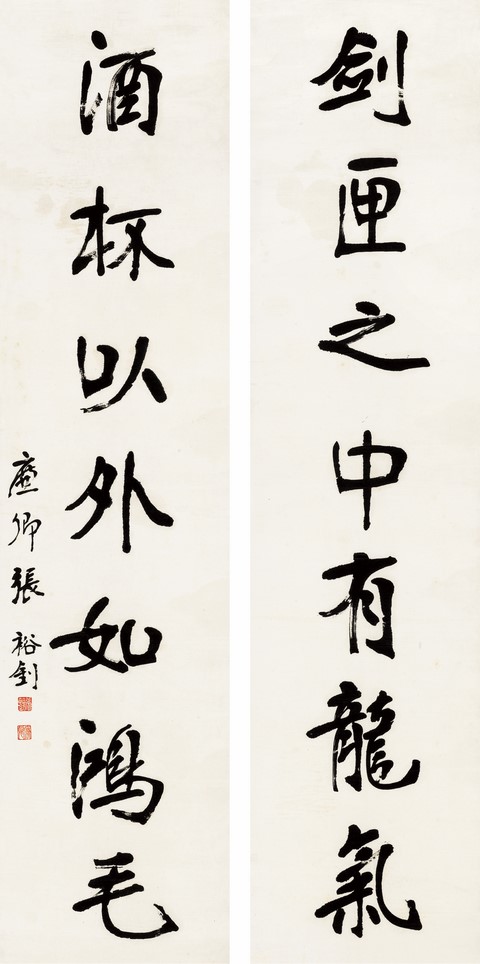 劍匣之中有龍氣
酒杯以外如鴻毛
廉卿張裕釗